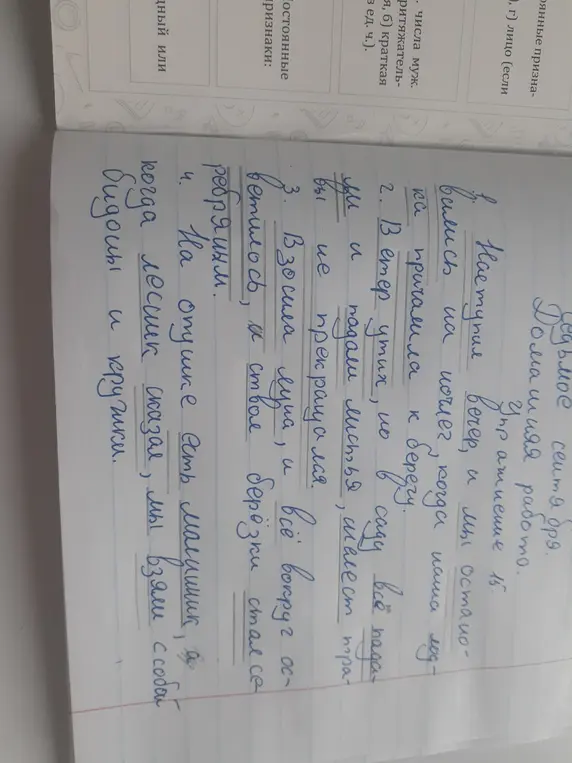 рянные призна-
), г) лицо (если
. числа муж.
ритяжатель-
я, б) краткая
з ед. ч.).
остоянные
ризнаки:
дный или
Седьмое сентября.
Домашняя работа.
Упражнение 15
1. Наступил вечер, и мы остано-
вились на ночлег, когда наша лод-
ка причалила к берегу.
2. Ветер утих, но в саду всё пада-
ли и падали листья, шелест тра-
вы не прекращался.
3. Взошла луна, и всё вокруг ос-
ветилось, и ствол берёзки стал се
ребряным.
4. На опушке есть малинник, а
когда лесник сказал, мы взяли с собой
бидоны и кружки.